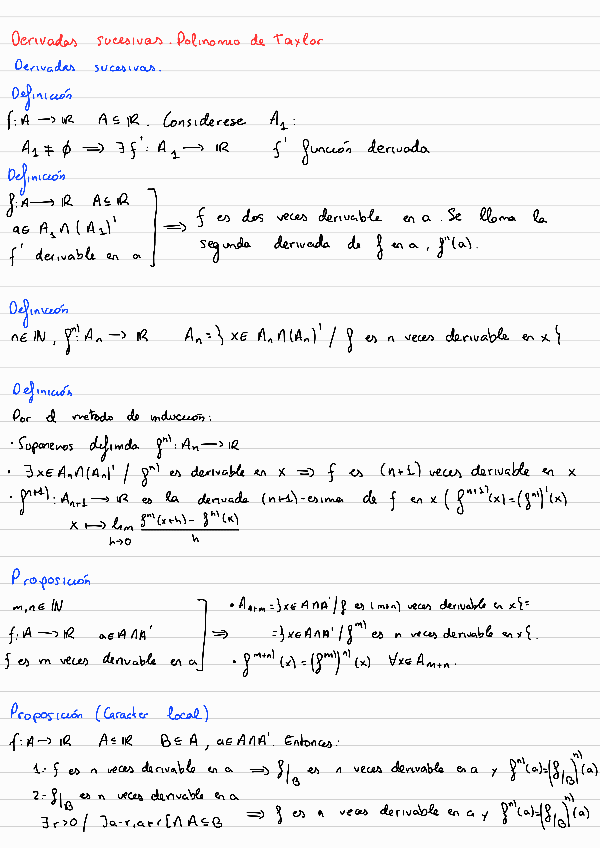 Derivadas sucesivas. Polinomio de Taylor
Derivadas sucesivas.
Definición
f: A → ℝ A ⊆ ℝ. Considerese A₁:
A₁ ≠ ∅ ⟹ ∃ f' : A₁ → ℝ f' función derivada
Definición
f: A → ℝ A ⊆ ℝ
a ∈ A₁ ∩ (A₁)'
f' derivable en a
⟹ f es dos veces derivable en a. Se llama la
segunda derivada de f en a, f''(a).
Definición
n ∈ ℕ, fⁿ⁾: Aₙ → ℝ Aₙ = } x ∈ Aₙ ∩ (Aₙ)' / f es n veces derivable en x {
Definición
Por el metodo de inducción:
· Suponemos definida fⁿ⁾: Aₙ → ℝ
· ∃ x ∈ Aₙ ∩ (Aₙ)' / fⁿ⁾ es derivable en x ⟹ f es (n+1) veces derivable en x
· fⁿ⁺¹⁾: Aₙ₊₁ → ℝ es la derivada (n+1)-esima de f en x ( fⁿ⁺¹⁾(x) = (fⁿ⁾)'(x)
x ⟼ lim h→0 (fⁿ⁾(x+h) - fⁿ⁾(x)) / h
Proposición
m, n ∈ ℕ
f: A → ℝ a ∈ A ∩ A'
f es m veces derivable en a
⟹
· Aₙ₊ₘ = } x ∈ A ∩ A' / f es (m+n) veces derivable en x { =
= } x ∈ A ∩ A' / fᵐ⁾ es n veces derivable en x {.
· fᵐ⁺ⁿ⁾(x) = (fᵐ⁾)ⁿ⁾(x) ∀x ∈ Aₘ₊ₙ.
Proposición (Caracter local)
f: A → ℝ A ⊆ ℝ B ⊆ A, a ∈ A ∩ A'. Entonces:
1.- f es n veces derivable en a ⟹ f|B es n veces derivable en a y fⁿ⁾(a) = (f|B)ⁿ⁾(a)
2.- f|B es n veces derivable en a
∃ r > 0 / ]a-r, a+r[ ∩ A ⊆ B
⟹ f es n veces derivable en a y fⁿ⁾(a) = (f|B)ⁿ⁾(a)